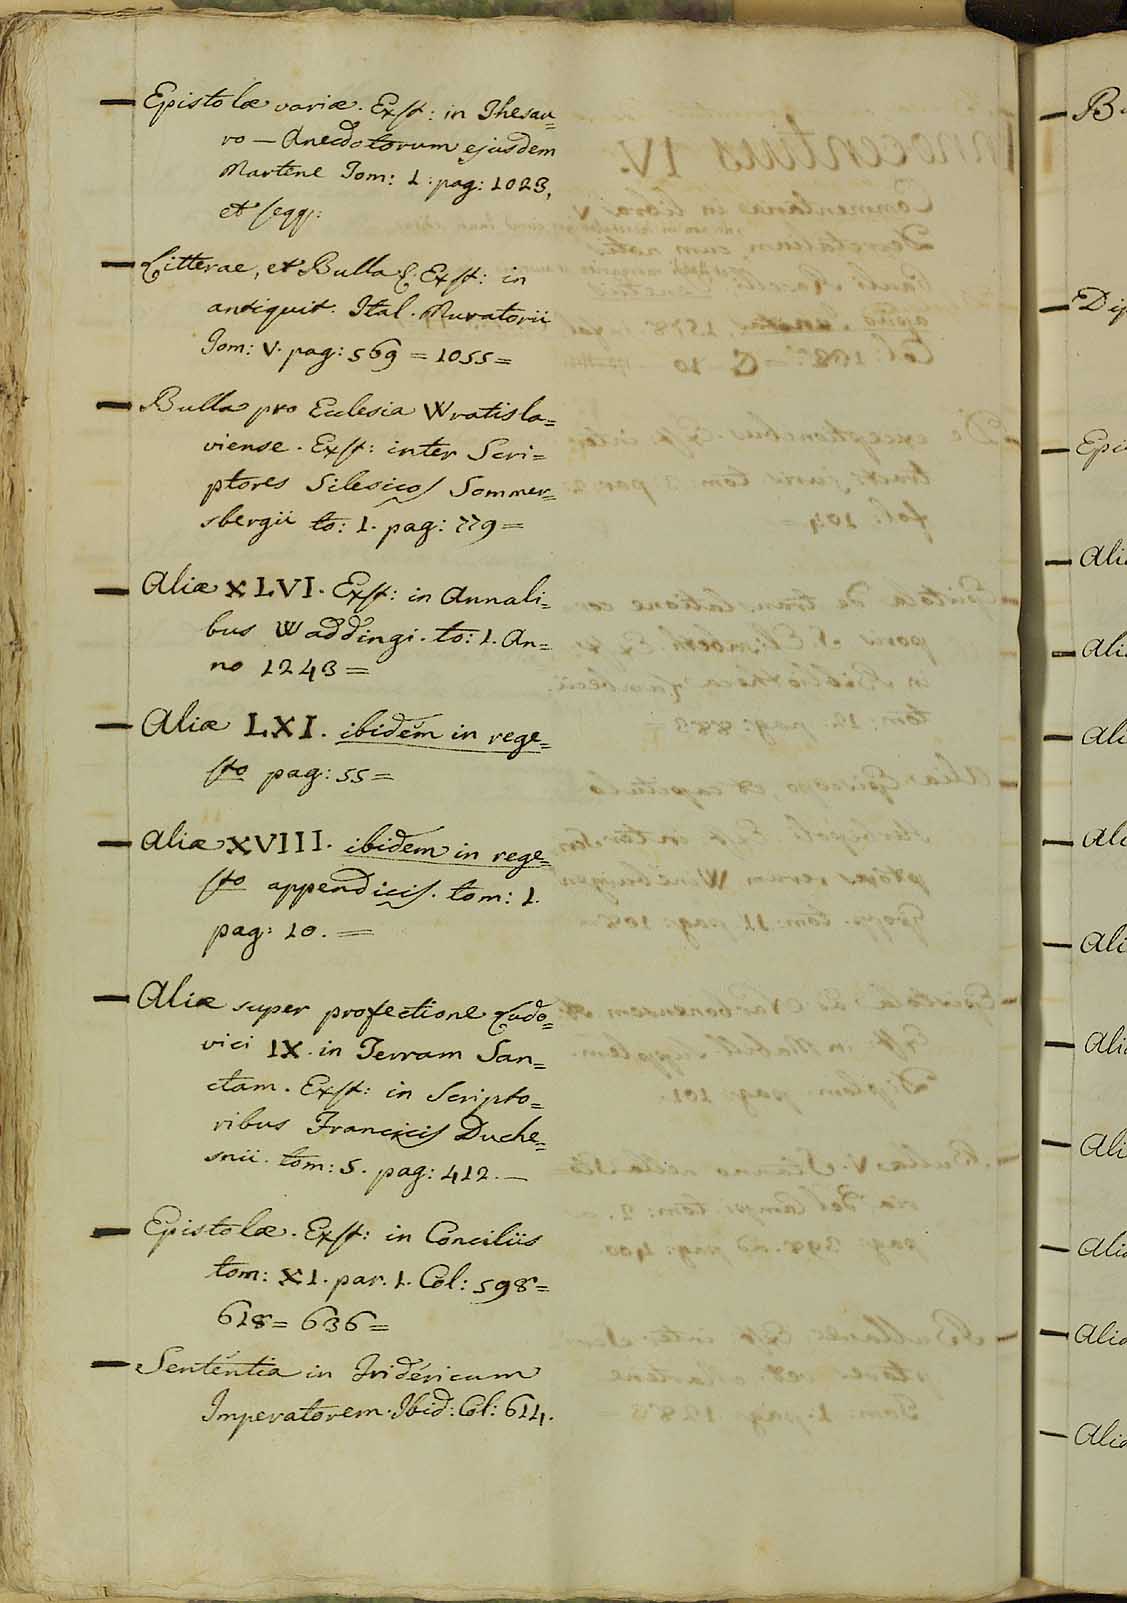 — Epistolæ variæ. Exst: in Thesau=
ro — Anecdotorum ejusdem
Martene Tom: 1: pag: 1023,
et seqq:
— Litterae, et Bullae. Exst: in
antiquit. Ital. Muratorii
Tom: V. pag: 569 = 1055 =
— Bulla pro Ecclesia Wratisla=
viense. Exst: inter Scri=
ptores Silesicos Sommer=
sbergii to: 1. pag: 779 =
— Aliæ XLVI. Exst: in Annali=
bus Waddingi. to: 1. An=
no 1243 =
— Aliæ LXI. ibidem in rege=
sto pag: 55 =
— Aliæ XVIII. ibidem in rege=
sto appendicis. tom: 1.
pag: 10. =
— Aliæ super profectione Ludo=
vici IX. in Terram San=
ctam. Exst: in Scripto=
ribus Francicis Duche=
snii. tom: 5. pag: 412. —
— Epistolæ. Exst: in Conciliis
tom: XI. par. 1. Col: 598 =
618 = 636 =
— Sententia in Fridericum
Imperatorem. Ibid: Col: 614.
— B
— Dip
— Epi
— Ali
— Ali
— Ali
— Ali
— Ali
— Ali
— Ali
— Ali
— Ali
— Ali